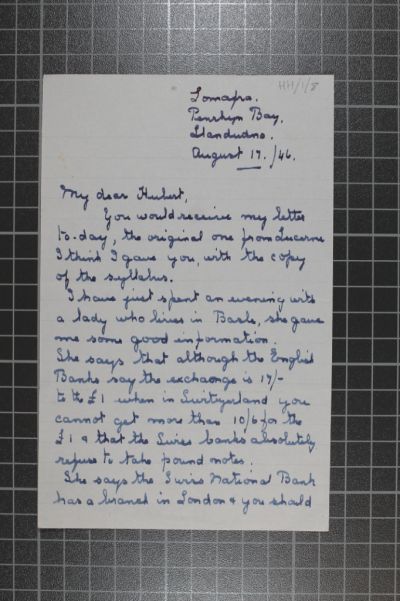 HH/1/8
Lomapra.
Penrhyn Bay,
Llandudno.
August 17./46.
My dear Hubert,
You would receive my letter
to-day, the original one from Lucerne
I think I gave you, with the copy
of the syllabus.
I have just spent an evening with
a lady who lives in Basle, she gave
me some good information.
She says that although the English
Banks say the exchaonge is 17/-
to the £1 when in Switzerland you
cannot get more than 10/6 for the
£1 & that the Swiss banks absolutely
refuse to take pound notes.
She says the Swiss National Bank
has a branch in London & you should